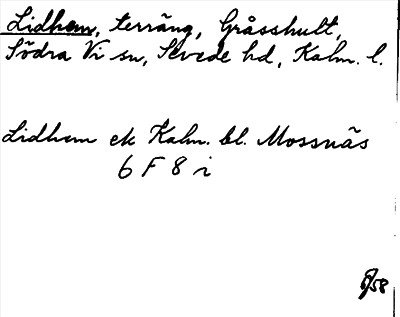 Lidhem, terräng, Gråsshult,
Södra Vi sn, Sevede hd, Kalm. l.
Lidhem ek Kalm. bl. Mossnäs
6 F 8 i
58